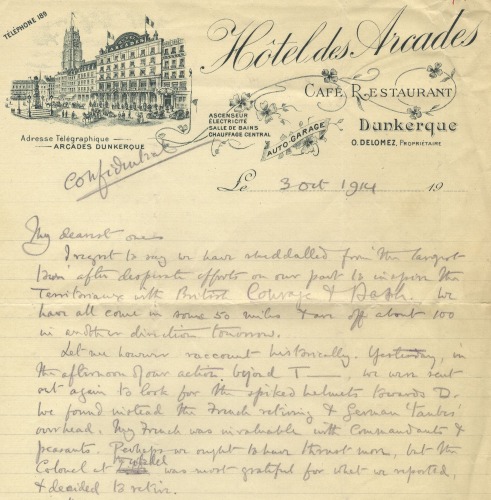 TÉLÉPHONE 189
Hôtel des Arcades
CAFÉ RESTAURANT
ASCENSEUR
ÉLECTRICITÉ
SALLE DE BAINS
CHAUFFAGE CENTRAL
AUTO-GARAGE
Dunkerque
O. DELOMEZ, PROPRIÉTAIRE
Adresse Télégraphique
ARCADES DUNKERQUE
Confidential
Le 3 Oct 1914 19
My dearest ones
I regret to say we have skedaddled from the largest
town after desperate efforts on our part to inspire the
Territoriaux with British Courage & Dash. We
have all come in some 50 miles & are off about 100
in another direction tomorrow.
Let me however raccount historically. Yesterday, in
the afternoon of our action beyond T——, we were sent
out again to look for the spiked helmets towards D.
We found instead the French retiring & German taubes
overhead. My French was invaluable with Commandants &
peasants. Perhaps we ought to have thrust more, but the
Colonel at was most grateful for what we reported,
& decided to retire.